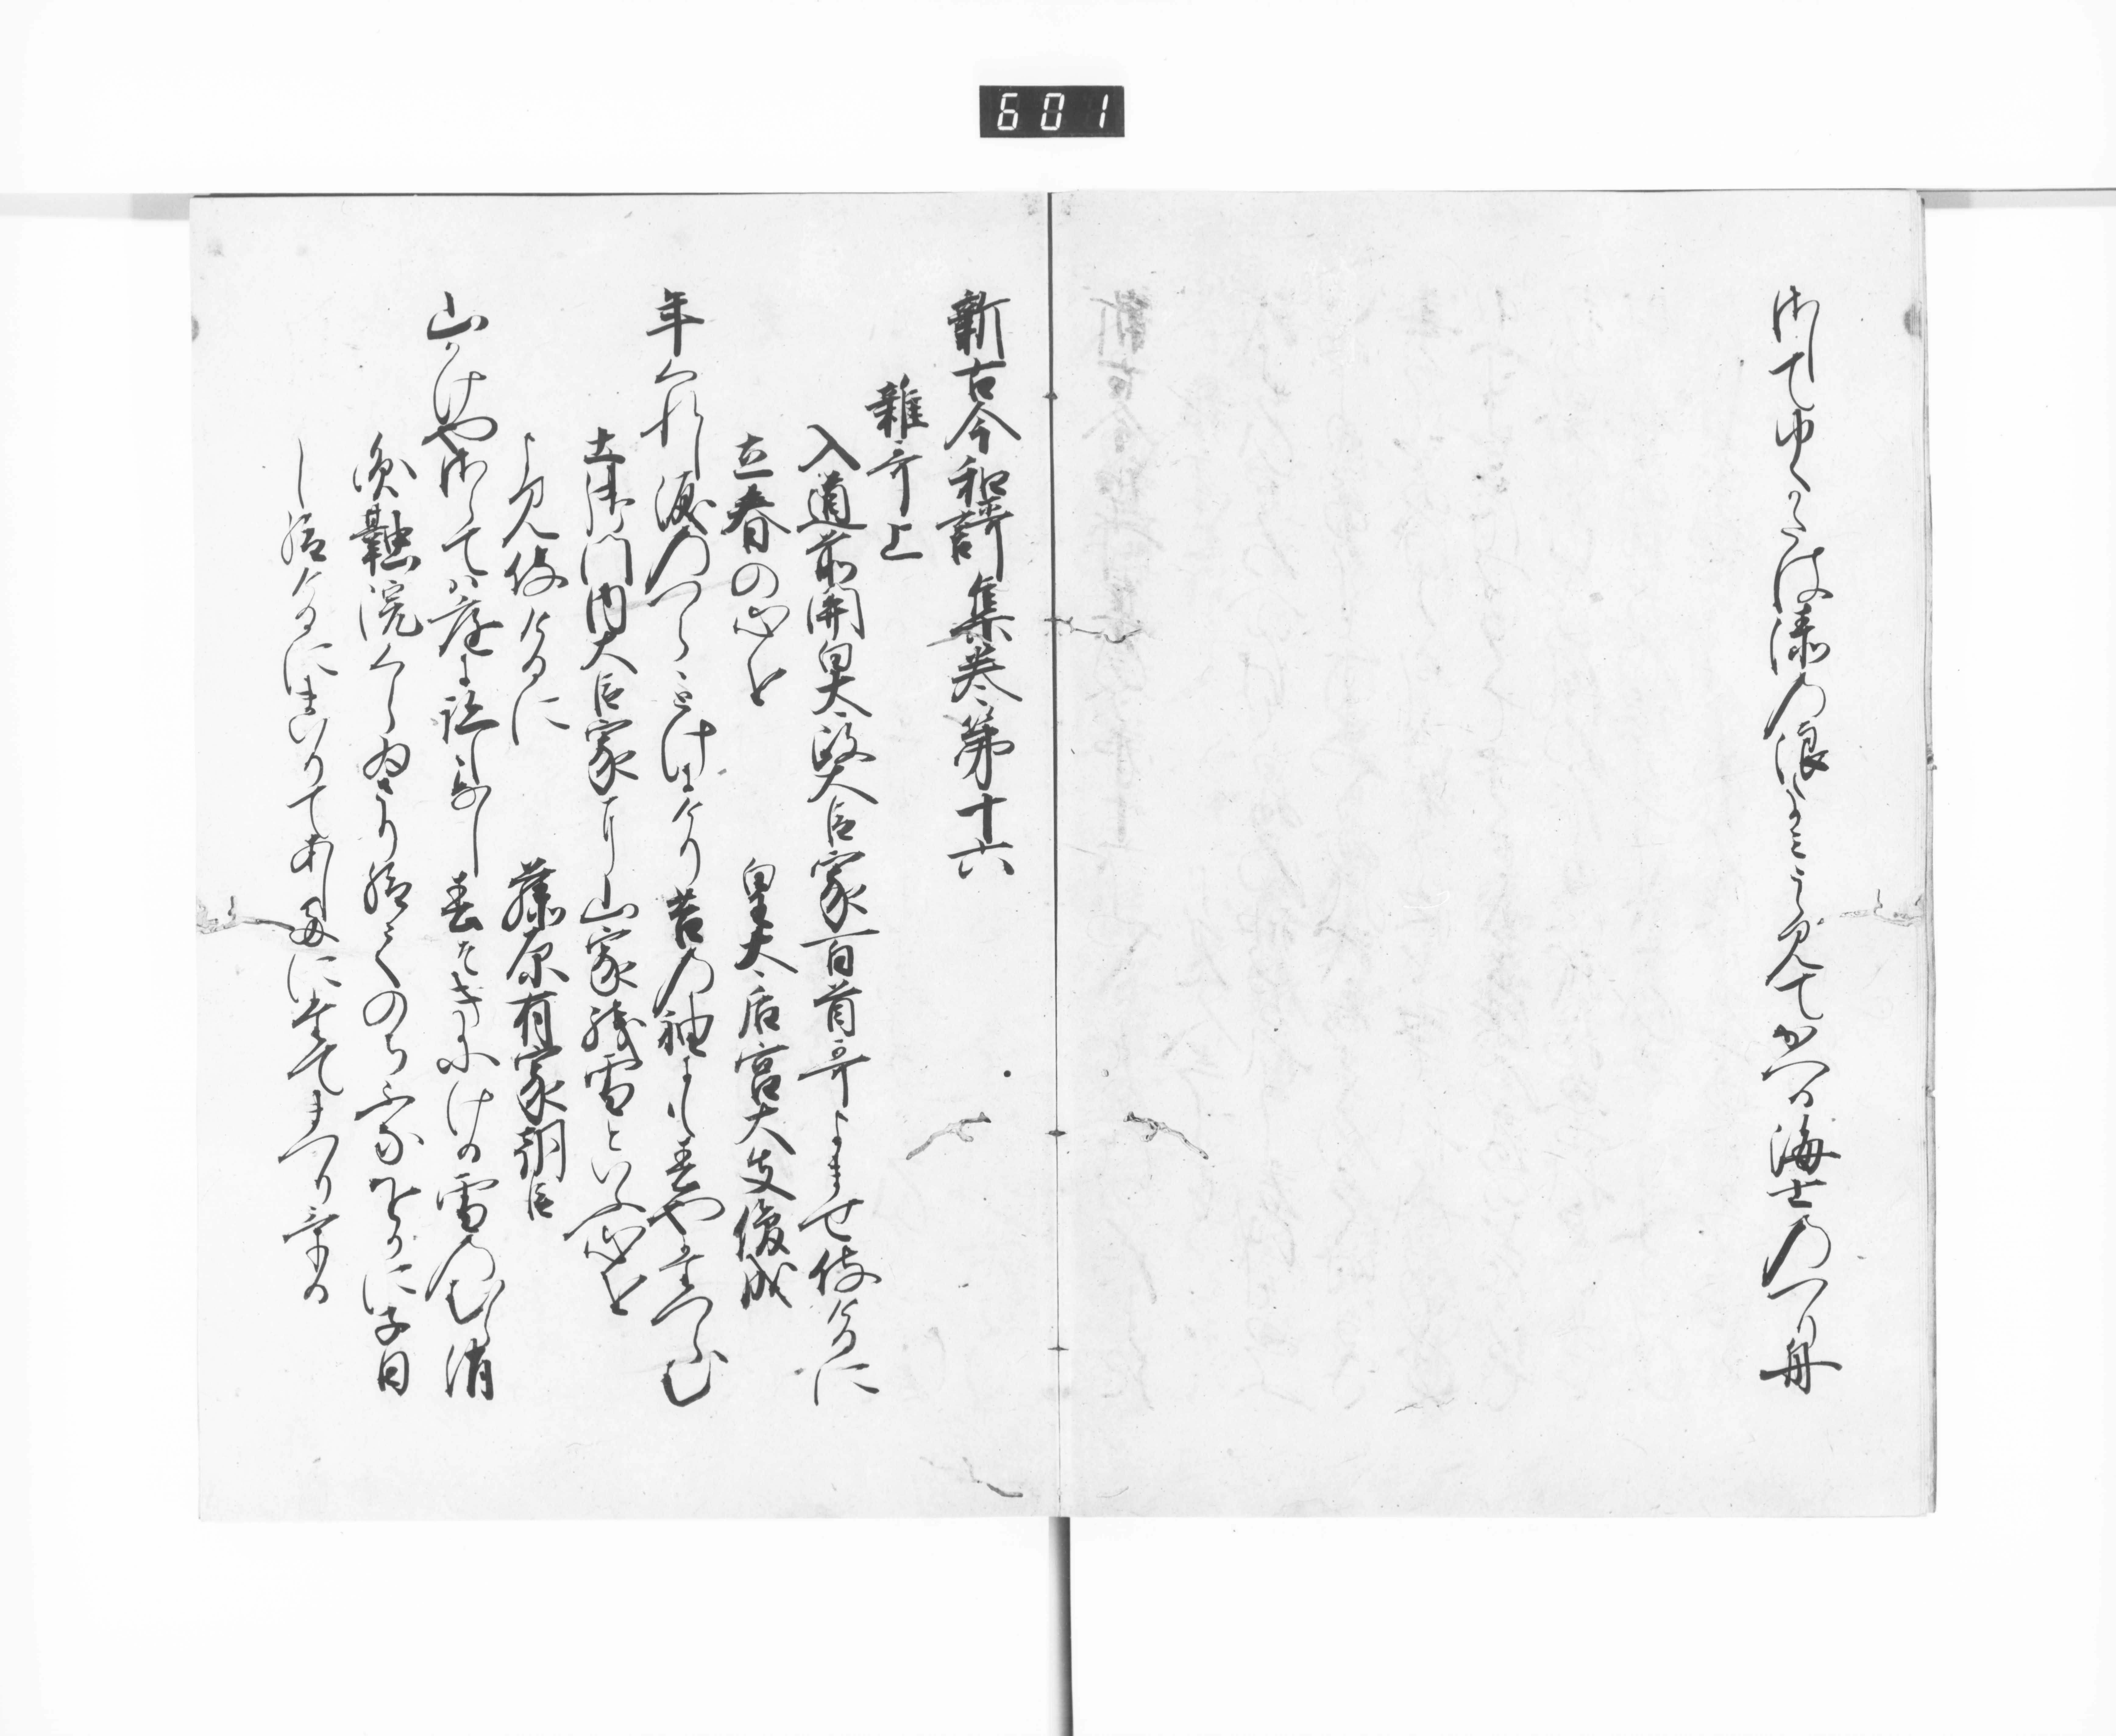 601
さしてゆくかたは湊の浪たかみうらみてかへる海士のつり舟
新古今和謌集巻第十六
雑哥上
入道前関白太政大臣家百首哥よませ侍けるに
立春の心を　皇太后宮大夫俊成
年くれし涙のつらゝとけにけり苔の袖にも春やたつらむ
土御門内大臣家にて山家残雪といふ心を
よみ侍けるに　藤原有家朝臣
山かけやさらては庭に跡もなし春そきにける雪のむら消
円融院くらゐさり給てのちふなをかに子日
し給けるにまいりてあしたにたてまつりける